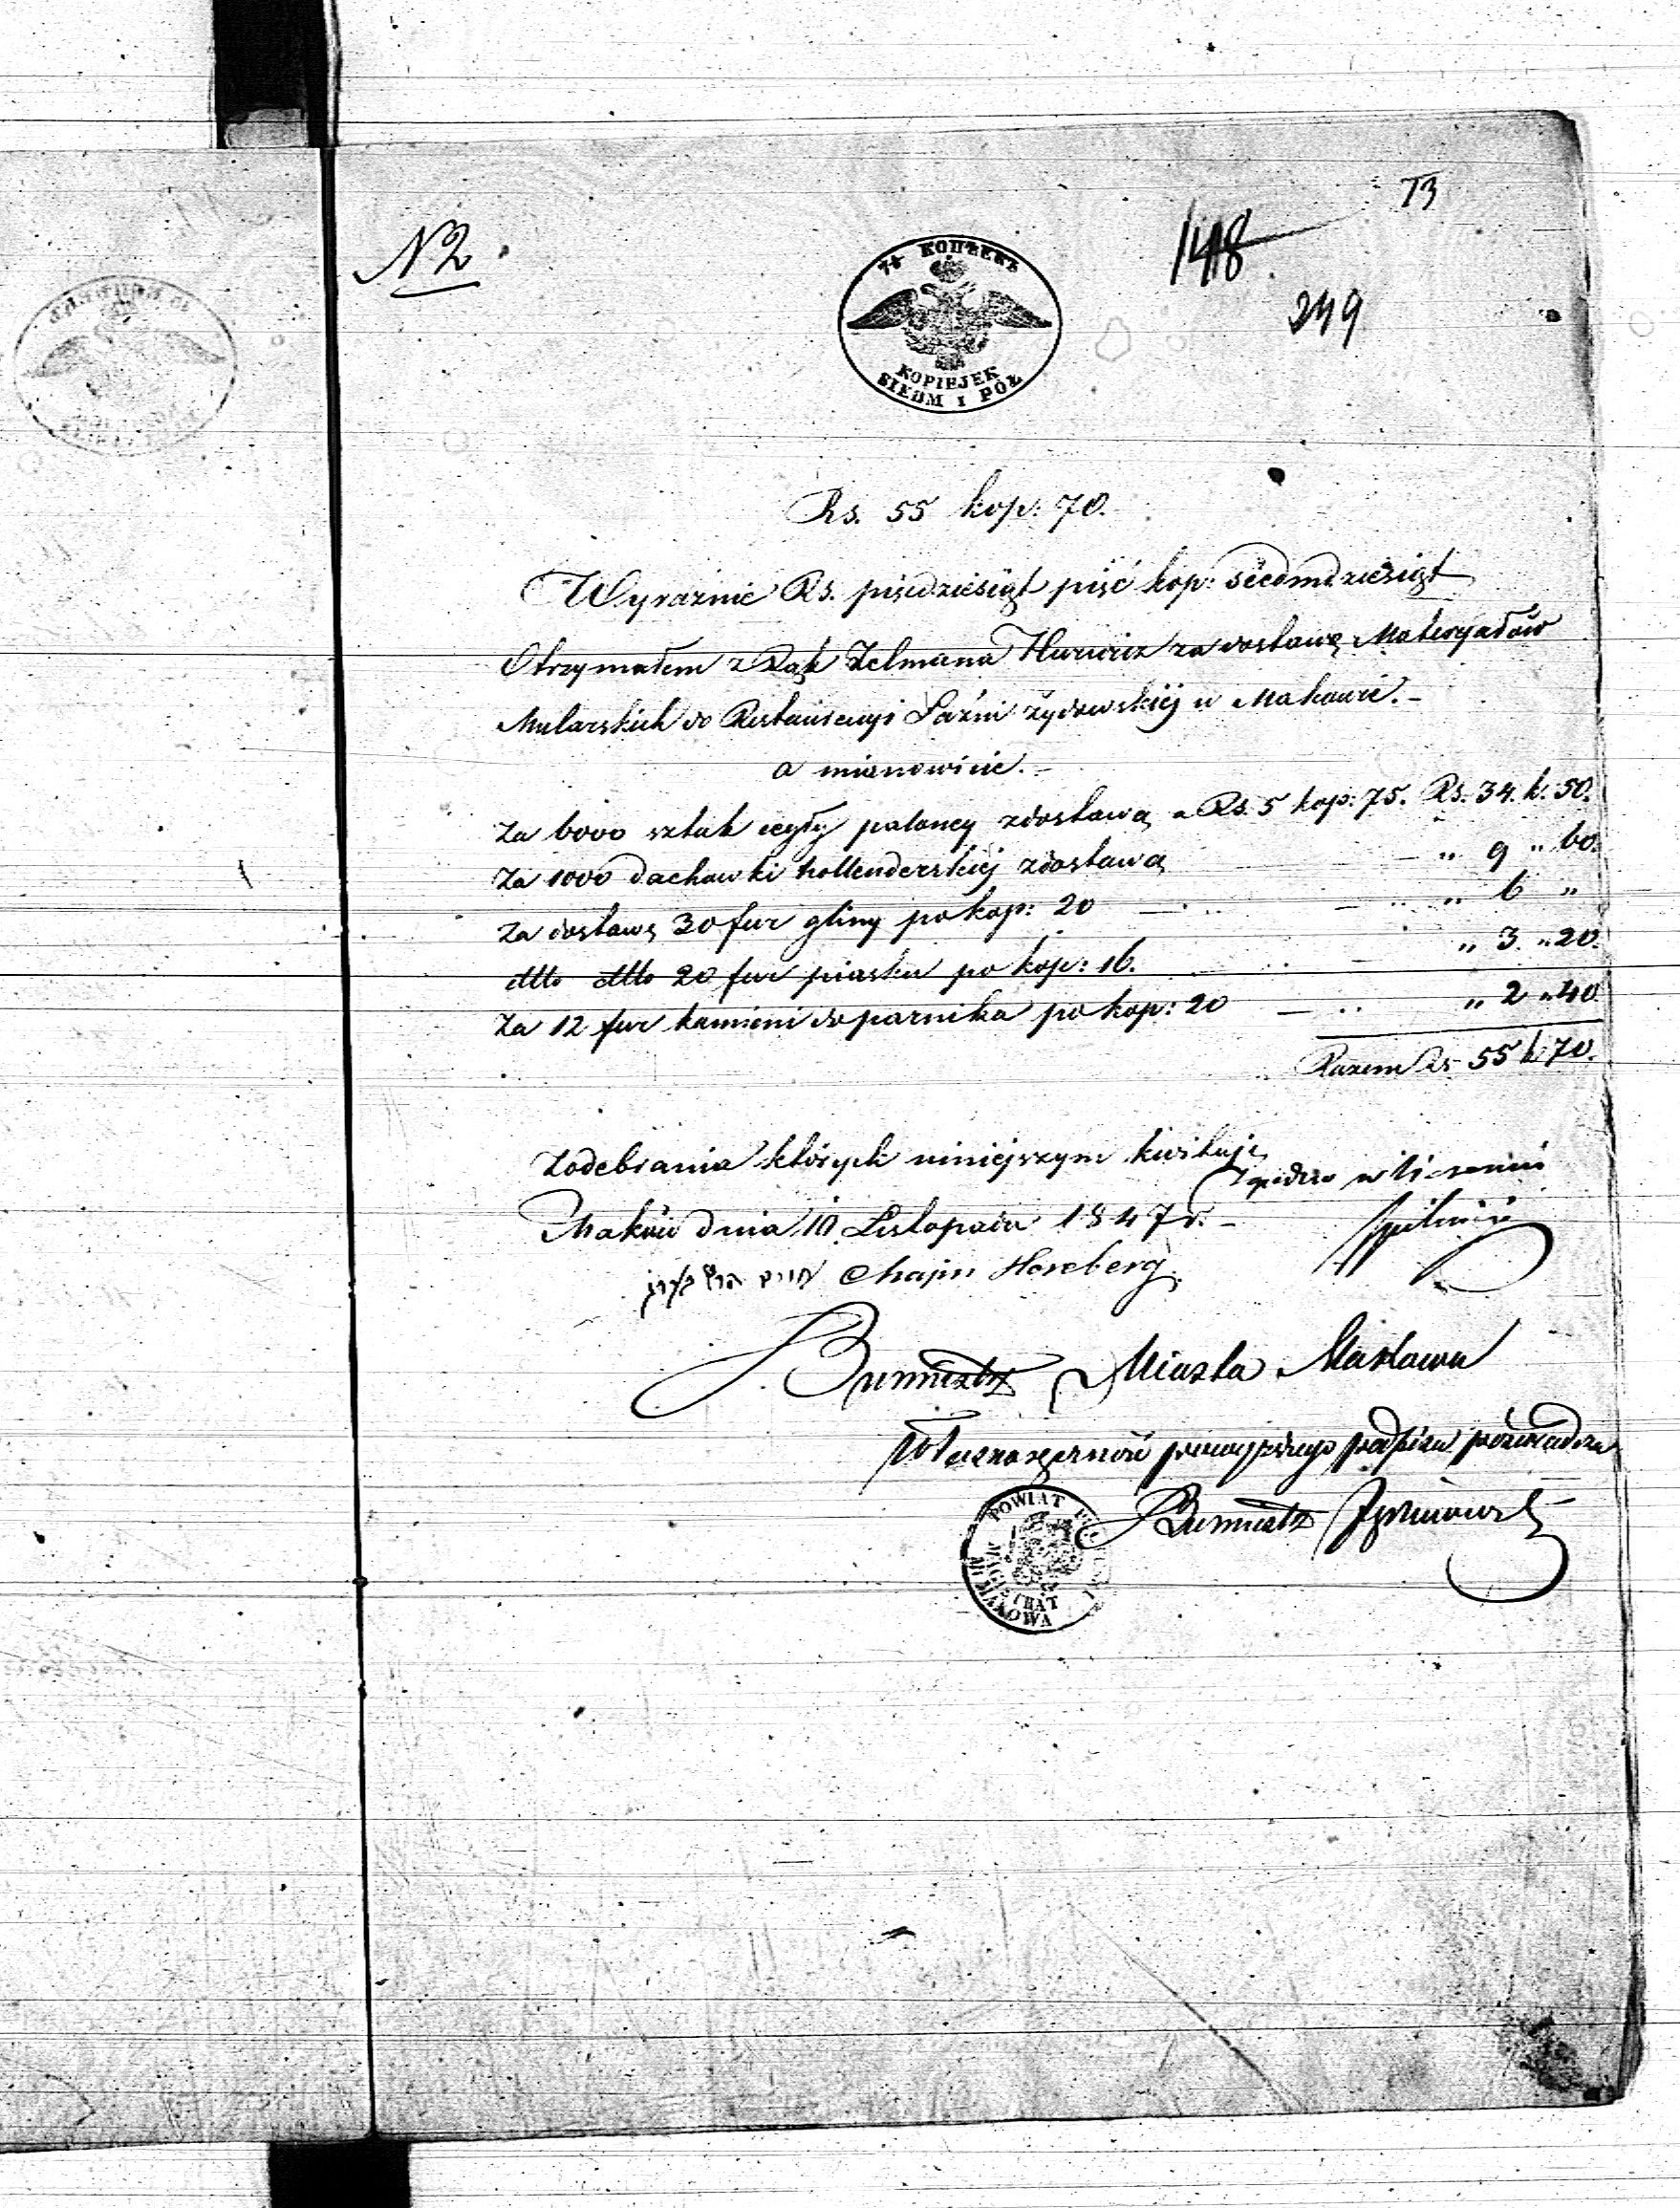 73
N 2
148
249
7½ КОПѢЕКЪ
KOPIEJEK
SIEDM I PÓŁ
Rs. 55 kop: 70.
Wyraźnie Rs. pięcdziesiąt pięć kop: siedmdziesiąt
Otrzymałem z Rąk Zelmana Hurwicz za dostawę Materyałów
Mularskich do Restauracyi Łaźni żydowskiéj w Makowie.-
a mianowicie.-
Za 6000 sztuk cegły paloney zdostawą a Rs. 5 kop: 75. Rs. 34. k. 50.
Za 1000 Dachowki hollenderskiej zdostawą „ 9 „ 60.
Za dostawę 30 fur gliny po kop: 20 „ 6 „
dtto dtto 20 fur piasku po kop: 16. „ 3. „ 20.
Za 12 fur kamieni do parnika po kop: 20 „ 2 „ 40
Razem Rs 55 k 70.
Zodebrania których niniejszym kwituję
Maków dnia 10 Listopada 1847 r.-
חיים Chajm Hercberg
Burmistrz Miasta Makowa
Własnoręczność powyższego podpisu poświadcza
Burmistrz
POWIAT
MAGISTRAT
M. MAKOWA